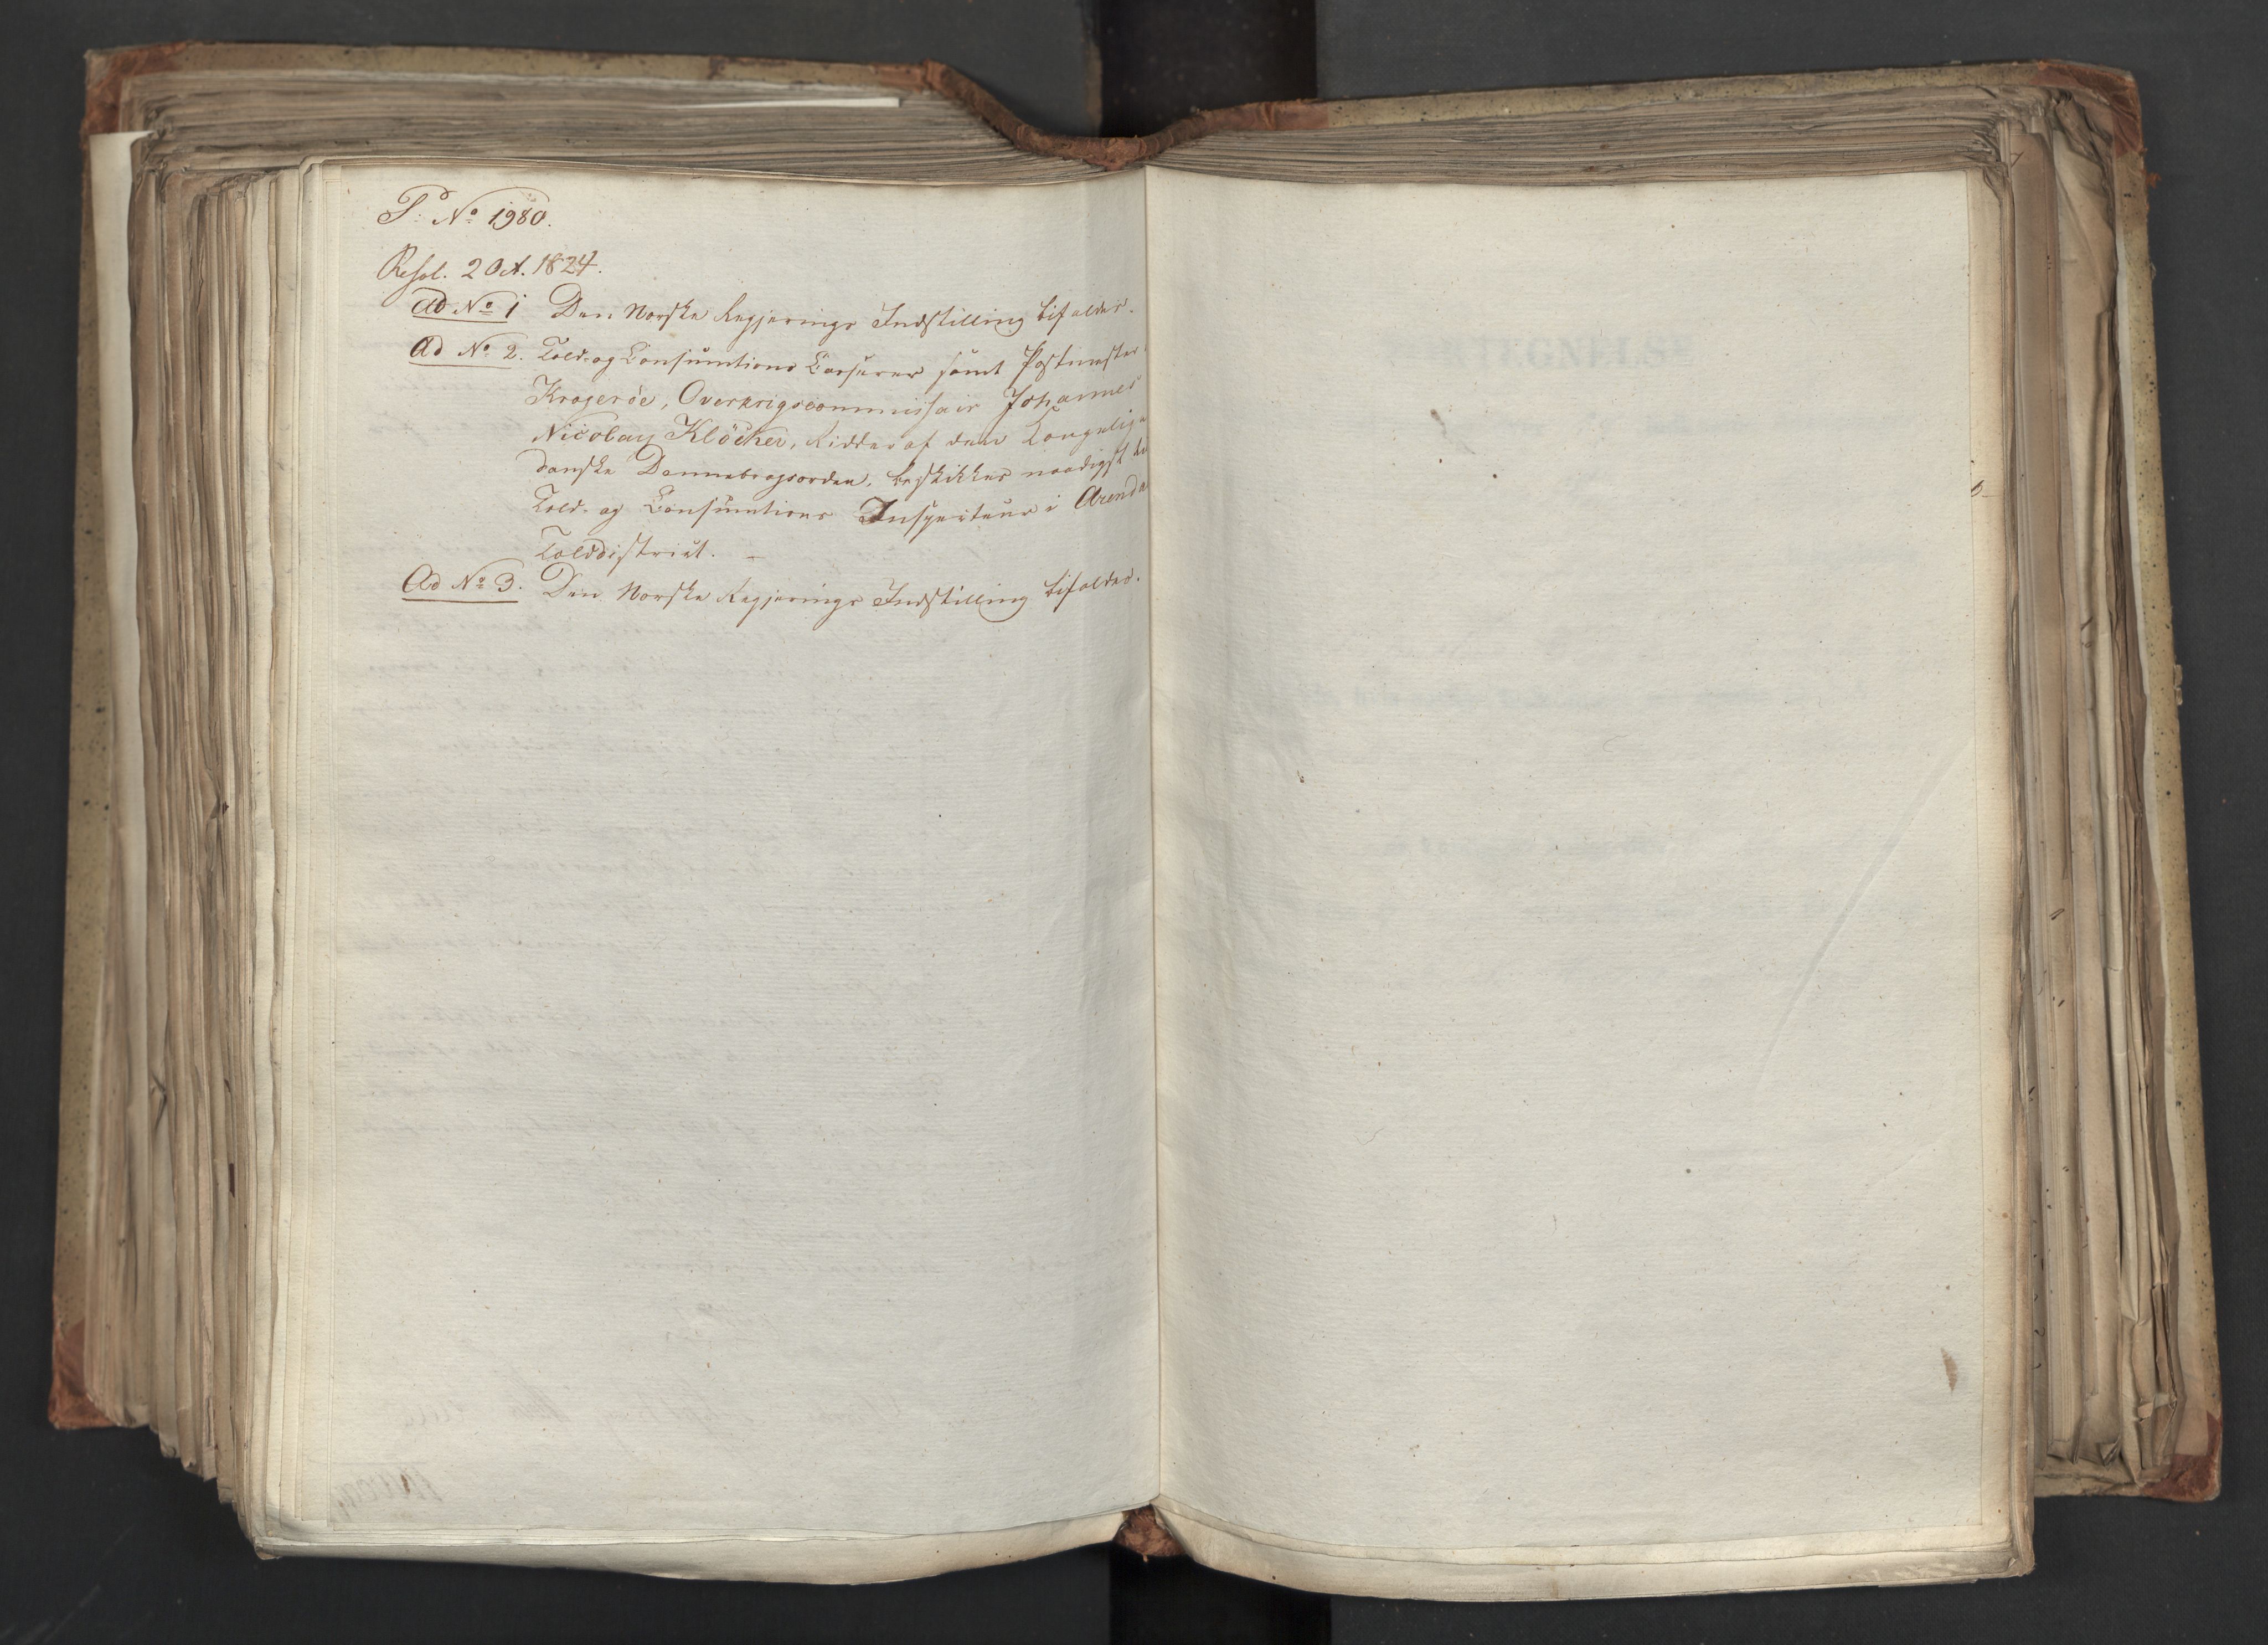 P: No 1980.
Resol. 2 Oct. 1824.
Ad No 1 Den Norske Regjerings Indstilling bifaldes.
Ad No 2. Told- og Consumtions Casserer samt Postmester i
Kragerøe, Overkrigscommissair Johannes
Nicolay Klöcker, Ridder af den Kongelige
danske Dannebrogsorden, beskikkes naadigst til
Told- og Consumtions Inspecteur i Arendal
Tolddistrict. —
Ad No 3. Den Norske Regjerings Indstilling bifaldes.